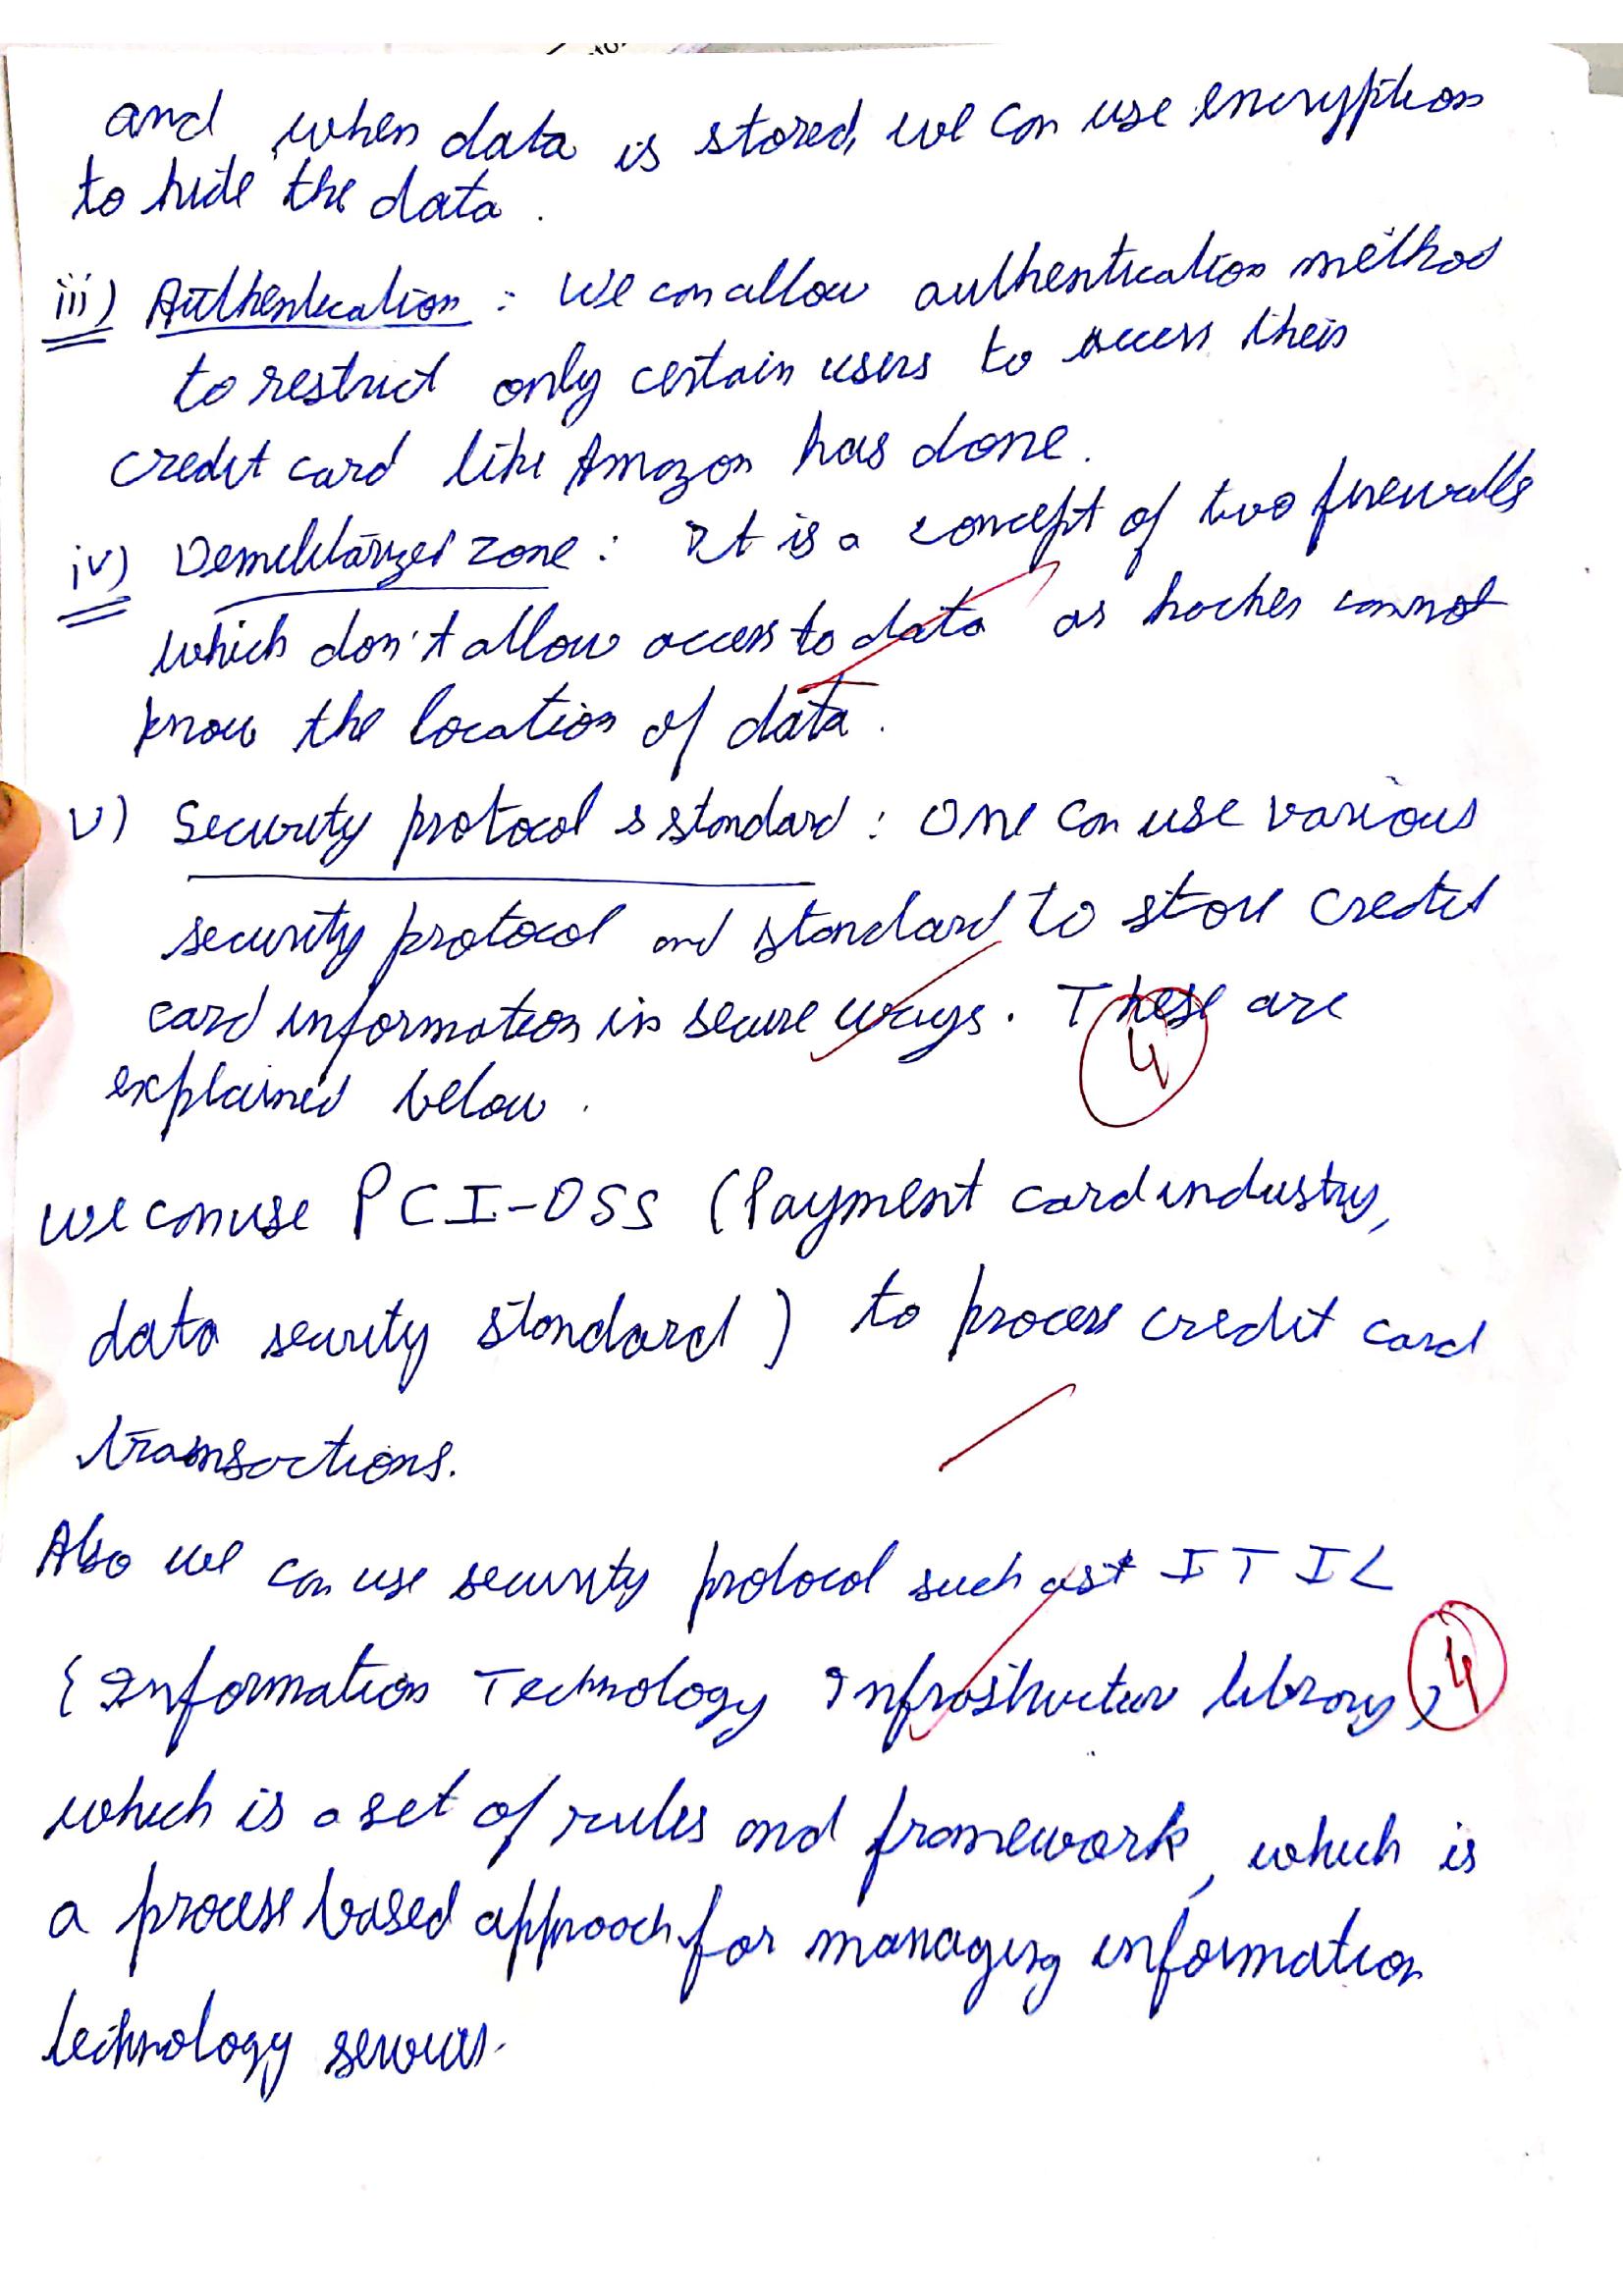 and when data is stored, we can use encryption
to hide the data.
iii) Authentication : We can allow authentication method
to restrict only certain users to access their
credit card like Amazon has done.
iv) Demilitarized zone : It is a concept of two firewalls
which don't allow access to data as hacker cannot
know the location of data.
v) Security protocol & standard : One can use various
security protocol and standard to store credit
card information in secure ways. These are
4
explained below.
we can use PCI-DSS (Payment card industry,
data security standard) to process credit card
transactions.
Also we can use security protocol such as ITIL
(Information Technology Infrastructure library)
4
which is a set of rules and framework, which is
a process based approach for managing information
technology services.